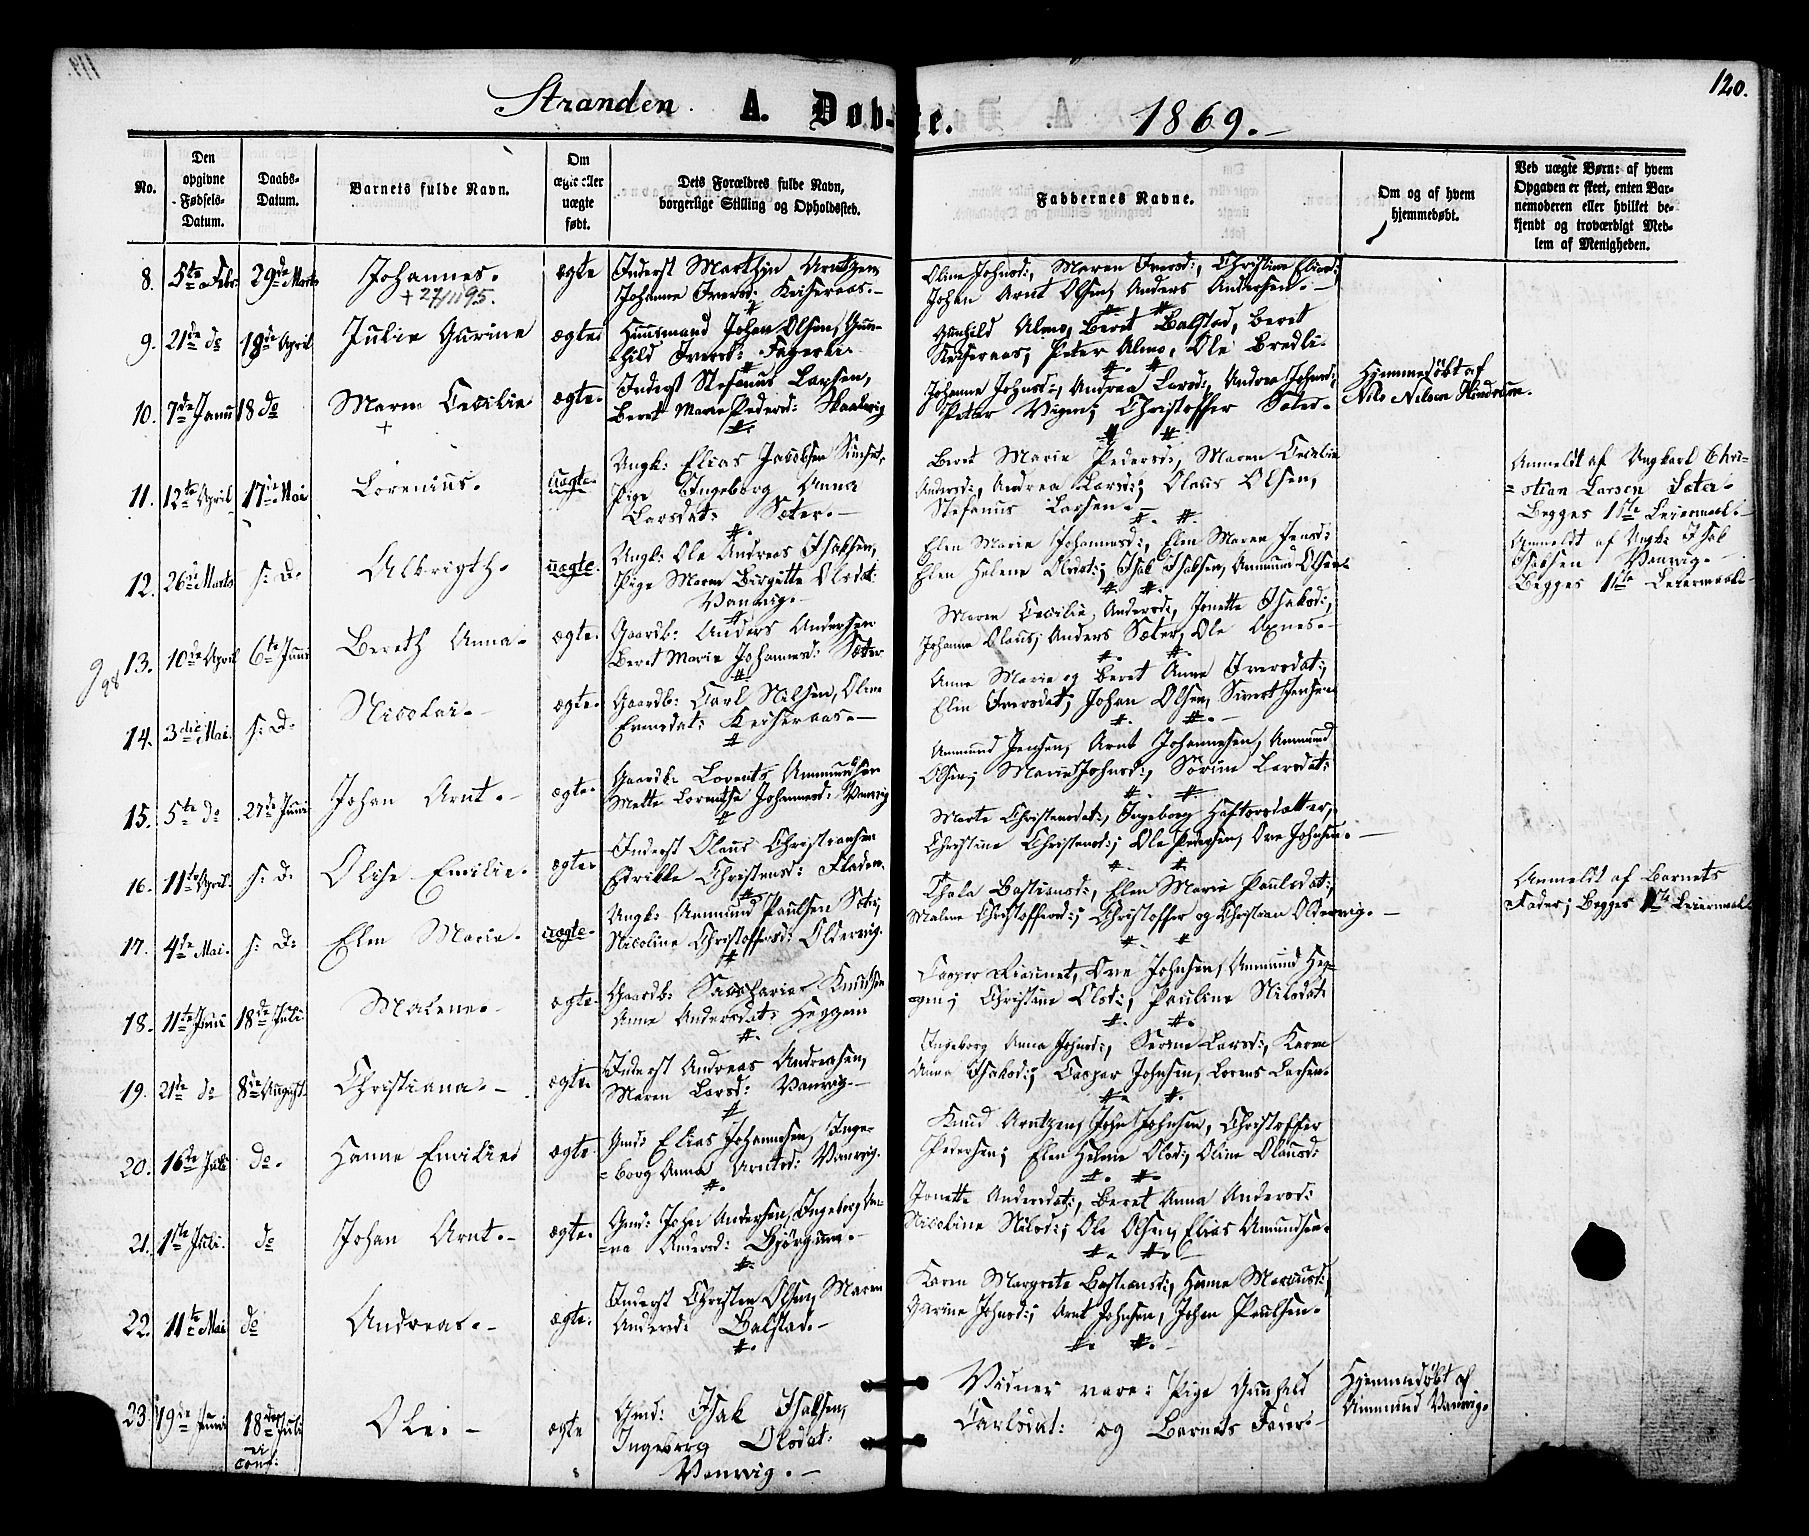 Stranden. A. Døb-te. 1869.-
120.
No.
Den opgivne Fødsels-Datum.
Daabs-Datum.
Barnets fulde Navn.
Om ægte eller uægte født.
Dets Forældres fulde Navn, borgerlige Stilling og Opholdssted.
Faddernes Navne.
Om og af hvem hjemmedøbt.
Ved uægte Børn: af hvem Opgaven er skeet, enten Barnemoderen eller hvilket bekjendt og troværdigt Medlem af Menigheden.
8. 5te Febr 29de Marts Johannes. ægte Inderst Marthin Arntzen
+ 27/1195. Johanne Iversd: Keiseraas.-
Oline Johnsd:, Maren Iversd:, Christine Eliasd:
Johan Arnt Olsen, Anders Andersen.-
9. 21de do 18de April Julie Gurine ægte Huusmand Johan Olsen, Gun-
hild Iversd: Fagerli.
Gunhild Almo, Beret Balstad, Beret
Keiseraas; Peter Almo, Ole Bredli.
10. 7de Janu 18 do Maren Cecilie ægte. Inderst Stefanus Larsen,
+ Beret Marie Pedersd: Skaalvig
Johanne Johnsd:, Andrea Larsd:, Andrea Johnsd:,
Peter Vigen; Christoffer Sæter.
Hjemmedøbt af
Nils Nilsen Hindrum.
11. 12te April 17de Mai Lorenius. uægte. Ungk: Elias Jacobsen
Pige Ingeborg Anna
Larsdat: Sæter.-
Beret Marie Pedersd:, Maren Cecilie
Andersd:, Andrea Larsd:; Olaus Olsen,
Stefanus Larsen.-
Anmeldt af Ungkarl Chri-
=stian Larsen Sæter.
Begges 1ste Leiermaal.
12. 26de Marts s: D. Albrigth. uægte. Ungk: Ole Andreas Isaksen,
Pige Maren Birgitte Olsdat:
Vanvig.
Elen Marie Johannesd:, Elen Maren Jensd:
Elen Helene Olsdat:; Isak Isaksen, Ammund Olsen
Anmeldt af Ungk: Isak
Isaksen Vanvig.
Begges 1ste Leiermaal.
13. 10de April 6te Juni Bereth Anna. ægte. Gaardb: Anders Andersen
Beret Marie Johannesd: Sæter
Maren Cecilie Andersd:, Jonette Isaksd:,
Johanna Olaus; Anders Sæter, Ole Axnes.-
14. 3die Mai. s: D. Nicolai. ægte. Gaardb: Carl Nilsen, Oline
Evensdat: Keiseraas.-
Anne Marie og Beret Anne Iversdat:;
Elen Iversdat; Johan Olsen, Sivert Jensen
15. 5te do 27de Juni Johan Arnt.- ægte. Gaardb: Lorents Ammundsen
Mette Lorentse Johannesd: Vanvig
Ammund Jensen, Arnt Johannesen, Ammund
Olsen; Marie Johnsd:, Sørine Larsdat:
16. 11te April. s: D. Olise Emilie. ægte Inderst Olaus Christiansen
Edrikke Christensd: Fladen.
Marte Christensdat:, Ingeborg Heftorsdatter,
Christine Christensd:; Ole Pedersen, Ove Johnsen.-
17. 4de Mai. s: D. Elen Marie. uægte. Ungk: Ammund Paulsen Sæter;
Nicoline Christoffersd: Oldervig.
Thala Bastiansd:, Elen Marie Paulsdat:,
Malene Christoffersd:; Christoffer og Christian Oldervig.-
Anmeldt af Barnets
Fader; Begges 1ste Leiermaal
18. 11te Juni 18de Juli Malene. ægte. Gaardb: Sacharias Knudsen
Anne Andersdat: Heggem
Casper, Ove Johnsen, Ammund Heg-
gem; Christine Olsd:, Pauline Nilsdat:
19. 21de do 8de August. Christiana.- ægte. Inderst Andreas Andreasen,
Maren Larsd: Vanvig.-
Ingeborg Anna Johnsd:, Serine Larsd:, Karen
Anna Isaksd:; Casper Johnsen, Lorens Larsen.
20. 16de Juli do. Hanne Emilie ægte. Gmd: Elias Johannesen, Inge-
=borg Anna Arntsd: Vanvig.
Knud Arntzen, John Johnsen, Christoffer
Pedersen; Elen Helene Olsd:, Oline Olausd:
21. 1ste Juli. do Johan Arnt.- ægte. Gmd: John Andersen, Ingeborg An-
=na Andersd: Bjørgum.-
Jonette Andersdat:, Beret Anna Andersd:
Nicoline Nilsd:; Ole Olsen, Elias Amundsen.
22. 11te Mai do Andreas.- ægte. Inderst Christen Olsen, Maren
Andersd: Balstad.-
Karen Margrete Bastiansd:, Hanna Marcusd:,
Gurine Johnsd:; Arnt Johnsen, Johan Paulsen.
23 19de Juni 18de Juli Ole.- ægte Gmd: Isak Isaksen,
ei conf: Ingeborg Olsdat:
Vanvig.-
Vidner vare: Pige Gunhild
Carlsdat: og Barnets Fader.-
Hjemmedøbt af
Ammund Vanvig.